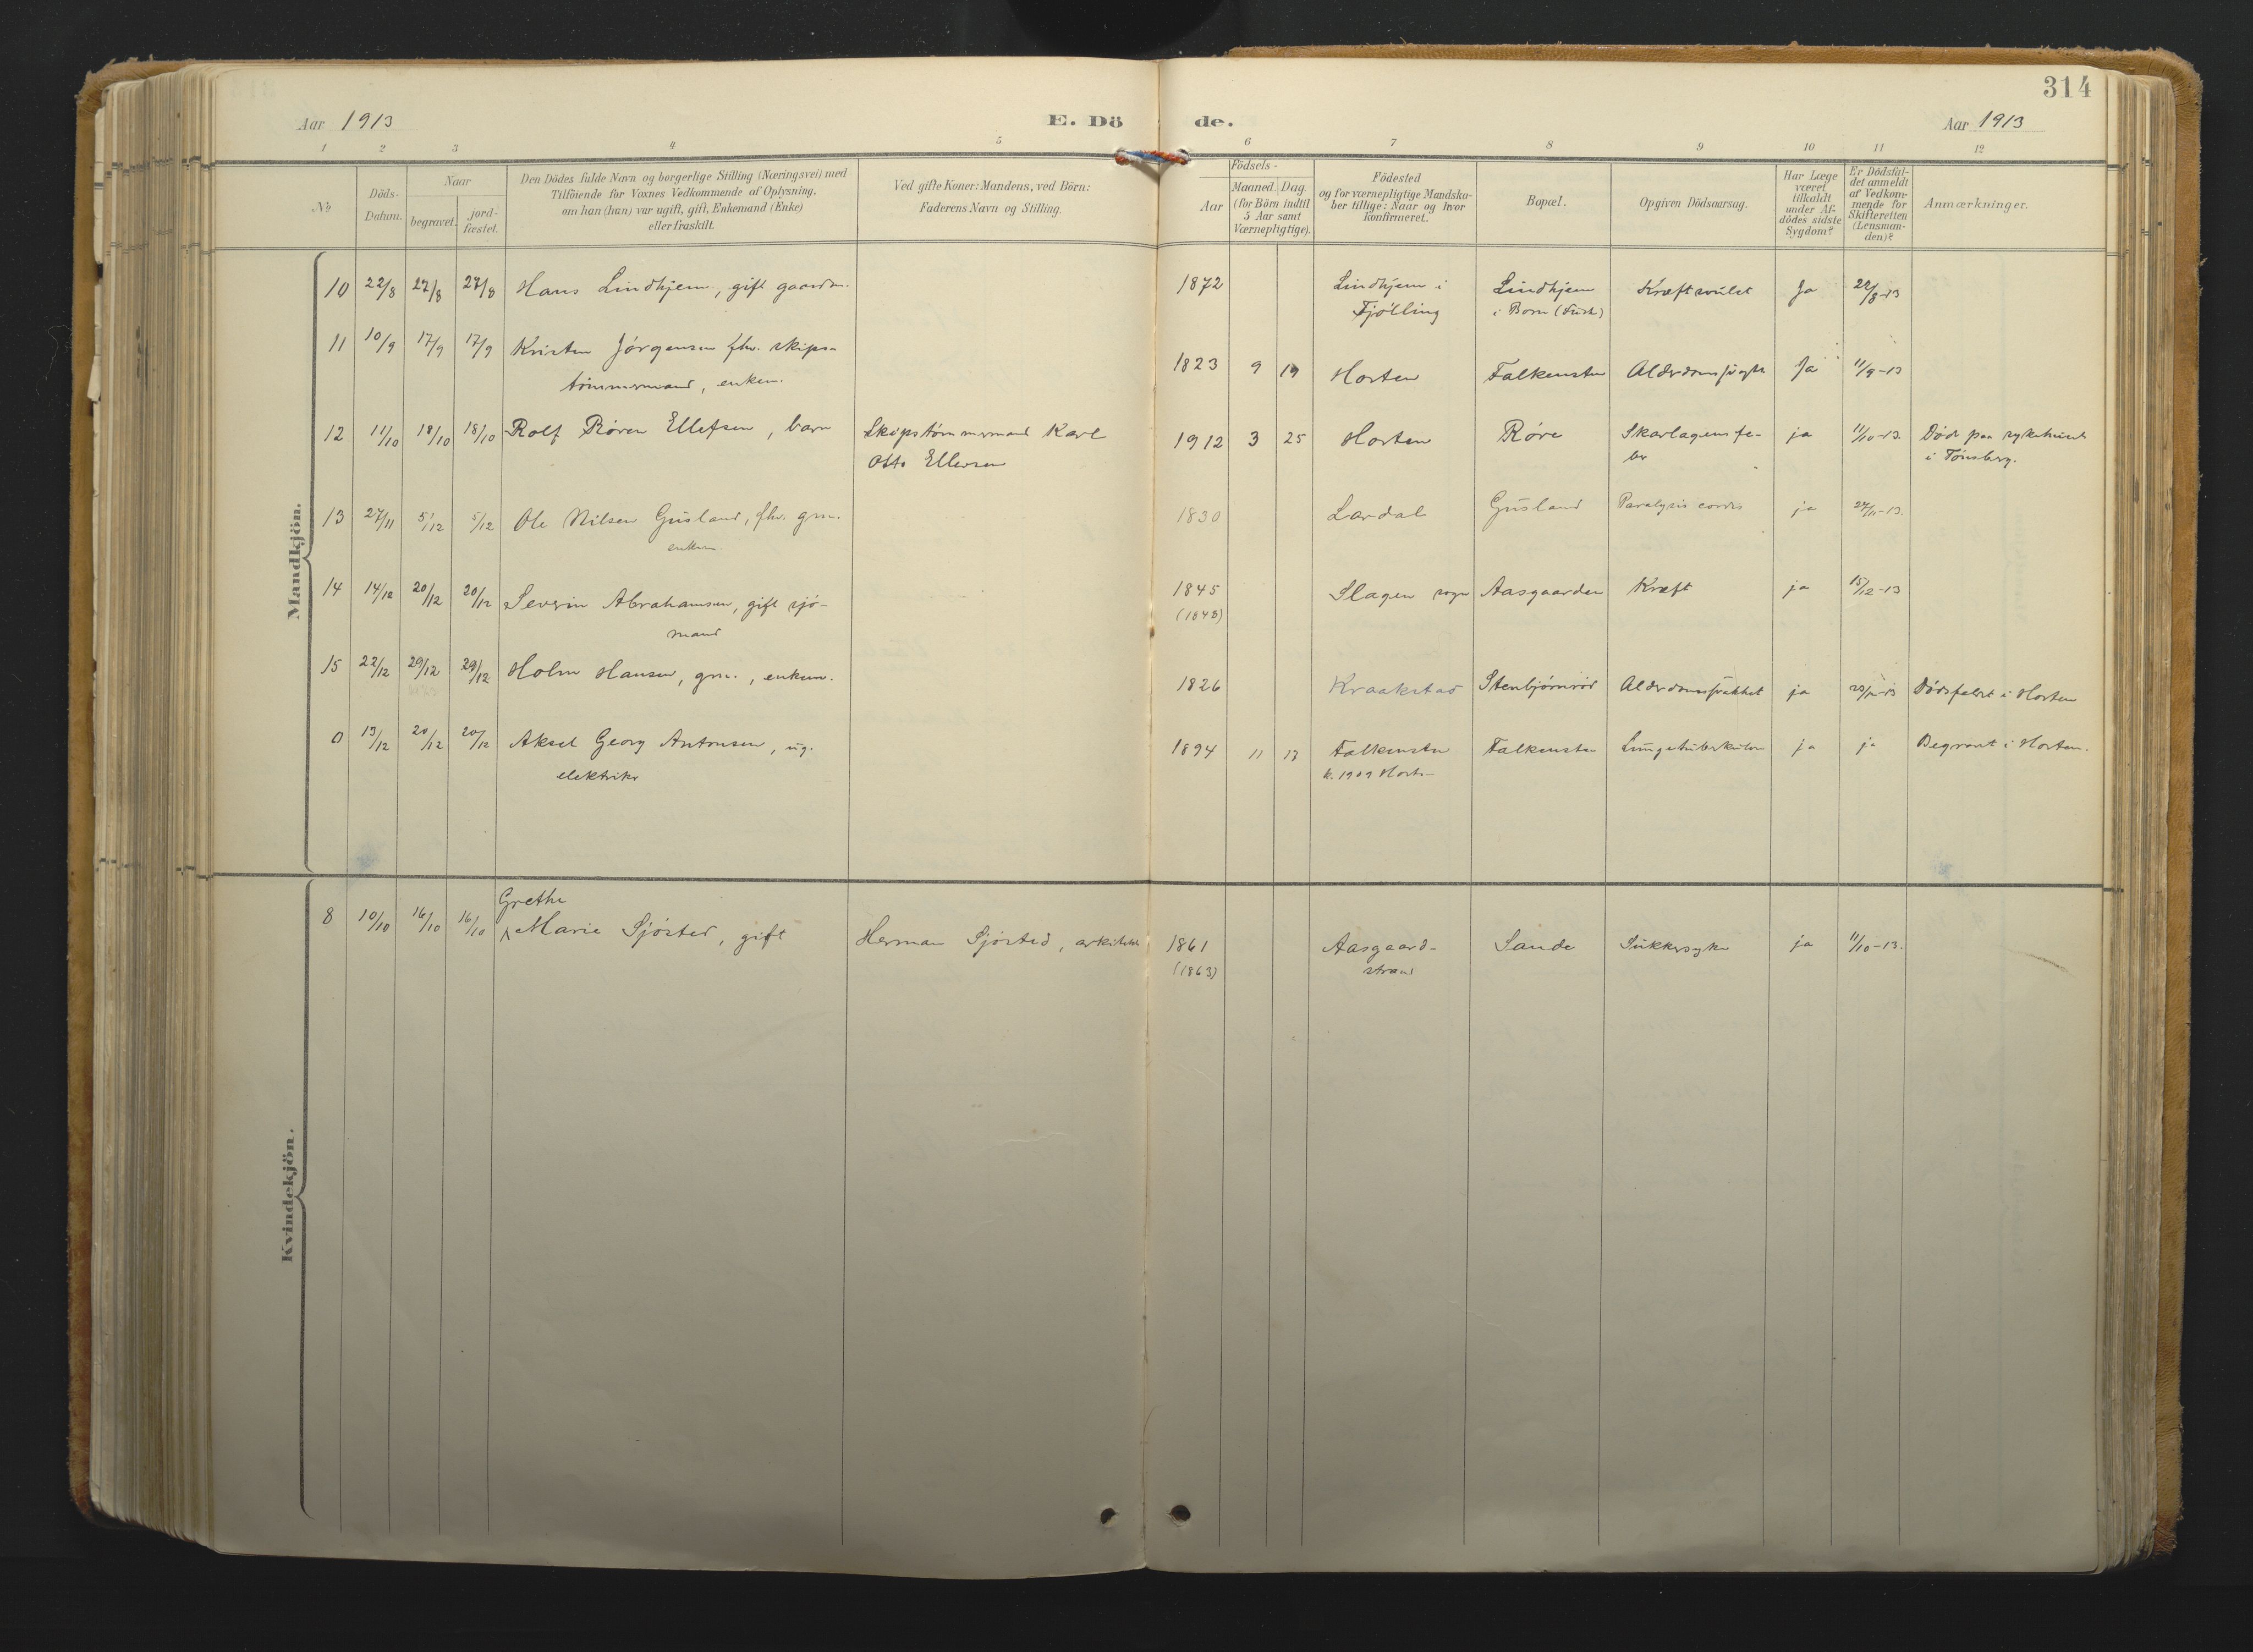 314
Aar 1913
E. Döde.
Aar 1913
1 2 3 4 5 6 7 8 9 10 11 12
No
Döds-
Datum.
Naar
begravet.
jord-
fæstet.
Den Dödes fulde Navn og borgerlige Stilling (Næringsvei) med
Tilföiende for Voxnes Vedkommende af Oplysning,
om han (hun) var ugift, gift, Enkemand (Enke)
eller fraskilt.
Ved gifte Koner: Mandens, ved Börn:
Faderens Navn og Stilling.
Födsels-
Aar
Maaned. Dag.
(for Börn indtil
5 Aar samt
Værnepligtige).
Födested
og for værnepligtige Mandska-
ber tillige: Naar og hvor
Konfirmeret.
Bopæl.
Opgiven Dödsaarsag.
Har Læge
været
tilkaldt
under Af-
dödes sidste
Sygdom?
Er Dödsfal-
det anmeldt
af Vedkom-
mende for
Skifteretten
(Lensman-
den)?
Anmærkninger.
Mandkjön.
10 22/8 27/8 27/8 Hans Lindhjem, gift gaardm. 1872 Lindhjem i Lindhjem Kræftsvulst Ja 22/8-13
Tjølling i Borre
11 10/9 17/9 17/9 Kristen Jørgensen fhv. skips-
tømmermand, enkem. 1823 9 19 Horten Falkensten Ja 11/9-13
12 11/10 18/10 18/10 Rolf Røren Ellefsen, barn Skipstømmermand Karl 1912 3 25 Horten Røre Skarlagensfe- ja 11/10-13. Død paa sykehuset
Otto Ellefsen ber i Tønsberg.
13 27/11 5/12 5/12 Ole Nilsen Gusland, fhv. gm. 1830 Lardal Gusland Paralysis cordis ja 27/11-13.
enkem.
14 14/12 20/12 20/12 Severin Abrahamsen, gift sjø- 1845 Slagen sogn Aasgaarden Kræft ja 15/12-13
mand (1848)
15 22/12 29/12 29/12 Holm Hansen, gm., enkem. 1826 Kraakstad Stenbjørnrød Alderdomssvakhet ja Dødsfaldet i Horten
0 13/12 20/12 20/12 Aksel Georg Antonsen, ug. 1894 11 13 Falkensten Falkensten Lungetuberkulose ja ja Begravet i Horten.
elektriker k. 1909 Horten
Kvindekjön.
Grethe
8 10/10 16/10 16/10 Marie Sjøsted, gift Herman Sjøsted, arkitekt 1861 Aasgaard- Sande Sukkersyke ja 11/10-13.
(1863) strand